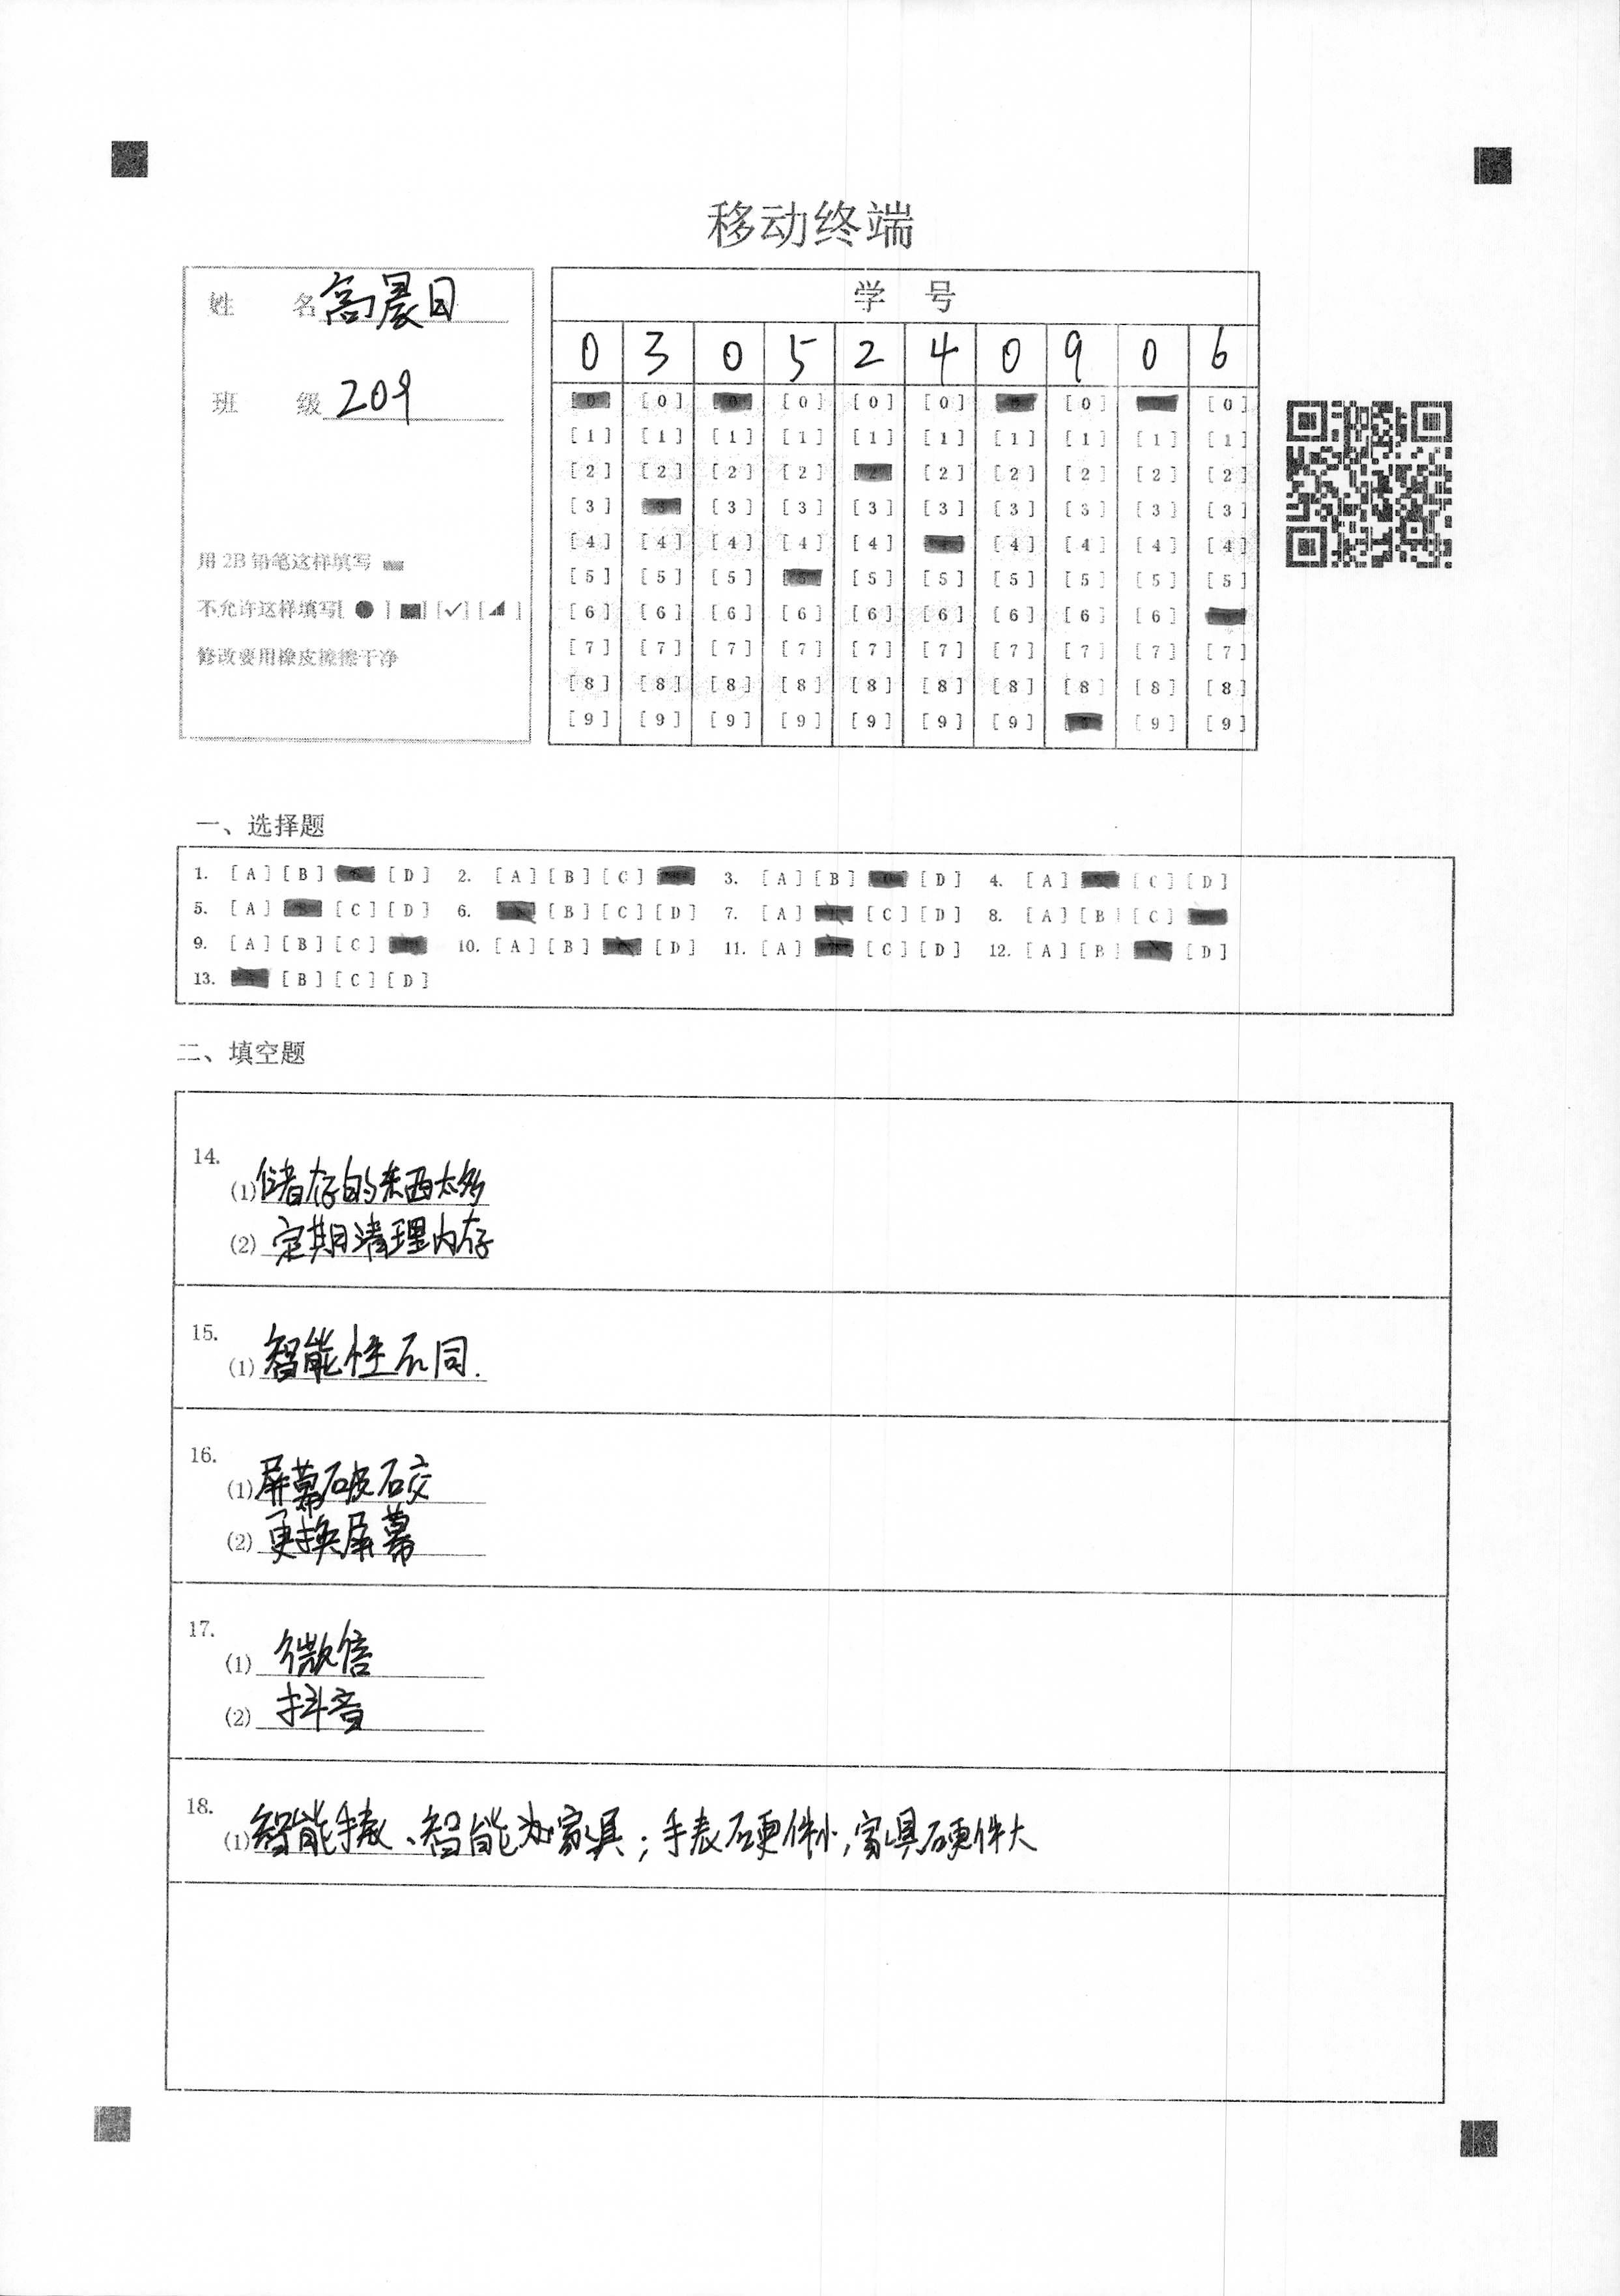 移动终端
姓 名 高晨日
班 级 209
用 2B 铅笔这样填写
不允许这样填写[ ● ] [■] [✓] [◢ ]
修改要用橡皮擦擦干净
学 号
0 3 0 5 2 4 0 9 0 6
[0] [0] [0] [0] [0] [0] [0] [0] [0] [0]
[1] [1] [1] [1] [1] [1] [1] [1] [1] [1]
[2] [2] [2] [2] [2] [2] [2] [2] [2] [2]
[3] [3] [3] [3] [3] [3] [3] [3] [3] [3]
[4] [4] [4] [4] [4] [4] [4] [4] [4] [4]
[5] [5] [5] [5] [5] [5] [5] [5] [5] [5]
[6] [6] [6] [6] [6] [6] [6] [6] [6]
[7] [7] [7] [7] [7] [7] [7] [7] [7] [7]
[8] [8] [8] [8] [8] [8] [8] [8] [8] [8]
[9] [9] [9] [9] [9] [9] [9] [9] [9]
一、选择题
1. [A] [B] [D] 2. [A] [B] [C] 3. [A] [B] [D] 4. [A] [C] [D]
5. [A] [C] [D] 6. [B] [C] [D] 7. [A] [C] [D] 8. [A] [B] [C]
9. [A] [B] [C] 10. [A] [B] [D] 11. [A] [C] [D] 12. [A] [B] [D]
13. [B] [C] [D]
二、填空题
14.
(1) 储存的东西太多
(2) 定期清理内存
15.
(1) 智能性不同.
16.
(1) 屏幕破碎
(2) 更换屏幕
17.
(1) 微信
(2) 抖音
18.
(1) 智能手表、智能家具；手表硬件小，家具硬件大